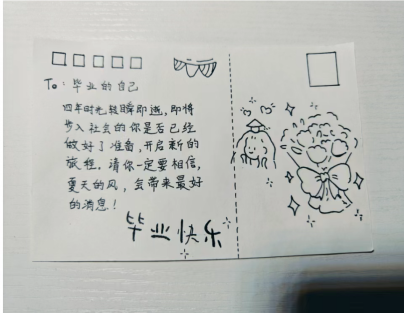 To：毕业的自己
四年时光转瞬即逝，即将
步入社会的你是否已经
做好了准备，开启新的
旅程，请你一定要相信，
夏天的风，会带来最好
的消息！
毕业快乐